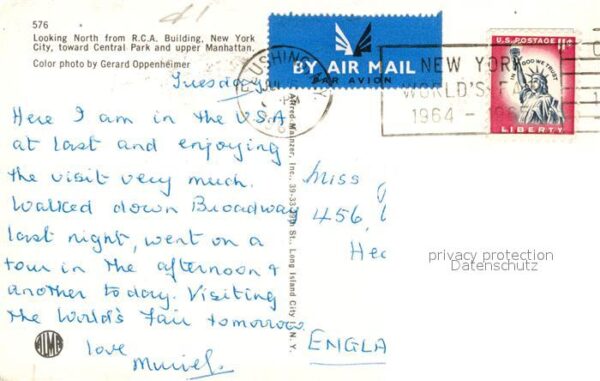 576
Looking North from R.C.A. Building, New York
City, toward Central Park and upper Manhattan.
Color photo by Gerard Oppenheimer
BY AIR MAIL
PAR AVION
NEW YORK
WORLD'S FA
1964 –
U.S. POSTAGE 11¢
IN GOD WE TRUST
LIBERTY
Tuesday
Here I am in the U.S.A
at last and enjoying
the visit very much.
Walked down Broadway
last night, went on a
tour in the afternoon &
another today. Visiting
the World's Fair tomorrow.
love
Muriel.
Alfred Mainzer, Inc., 39-33 29th St., Long Island City 1, N.Y.
Miss
456,
Hea
ENGLA
privacy protection
Datenschutz